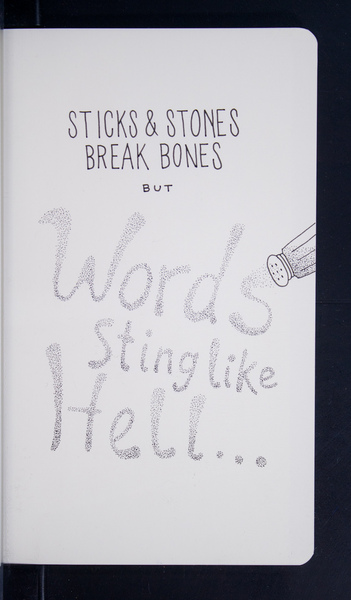 STICKS & STONES
BREAK BONES
BUT
Words
Sting like
Hell...